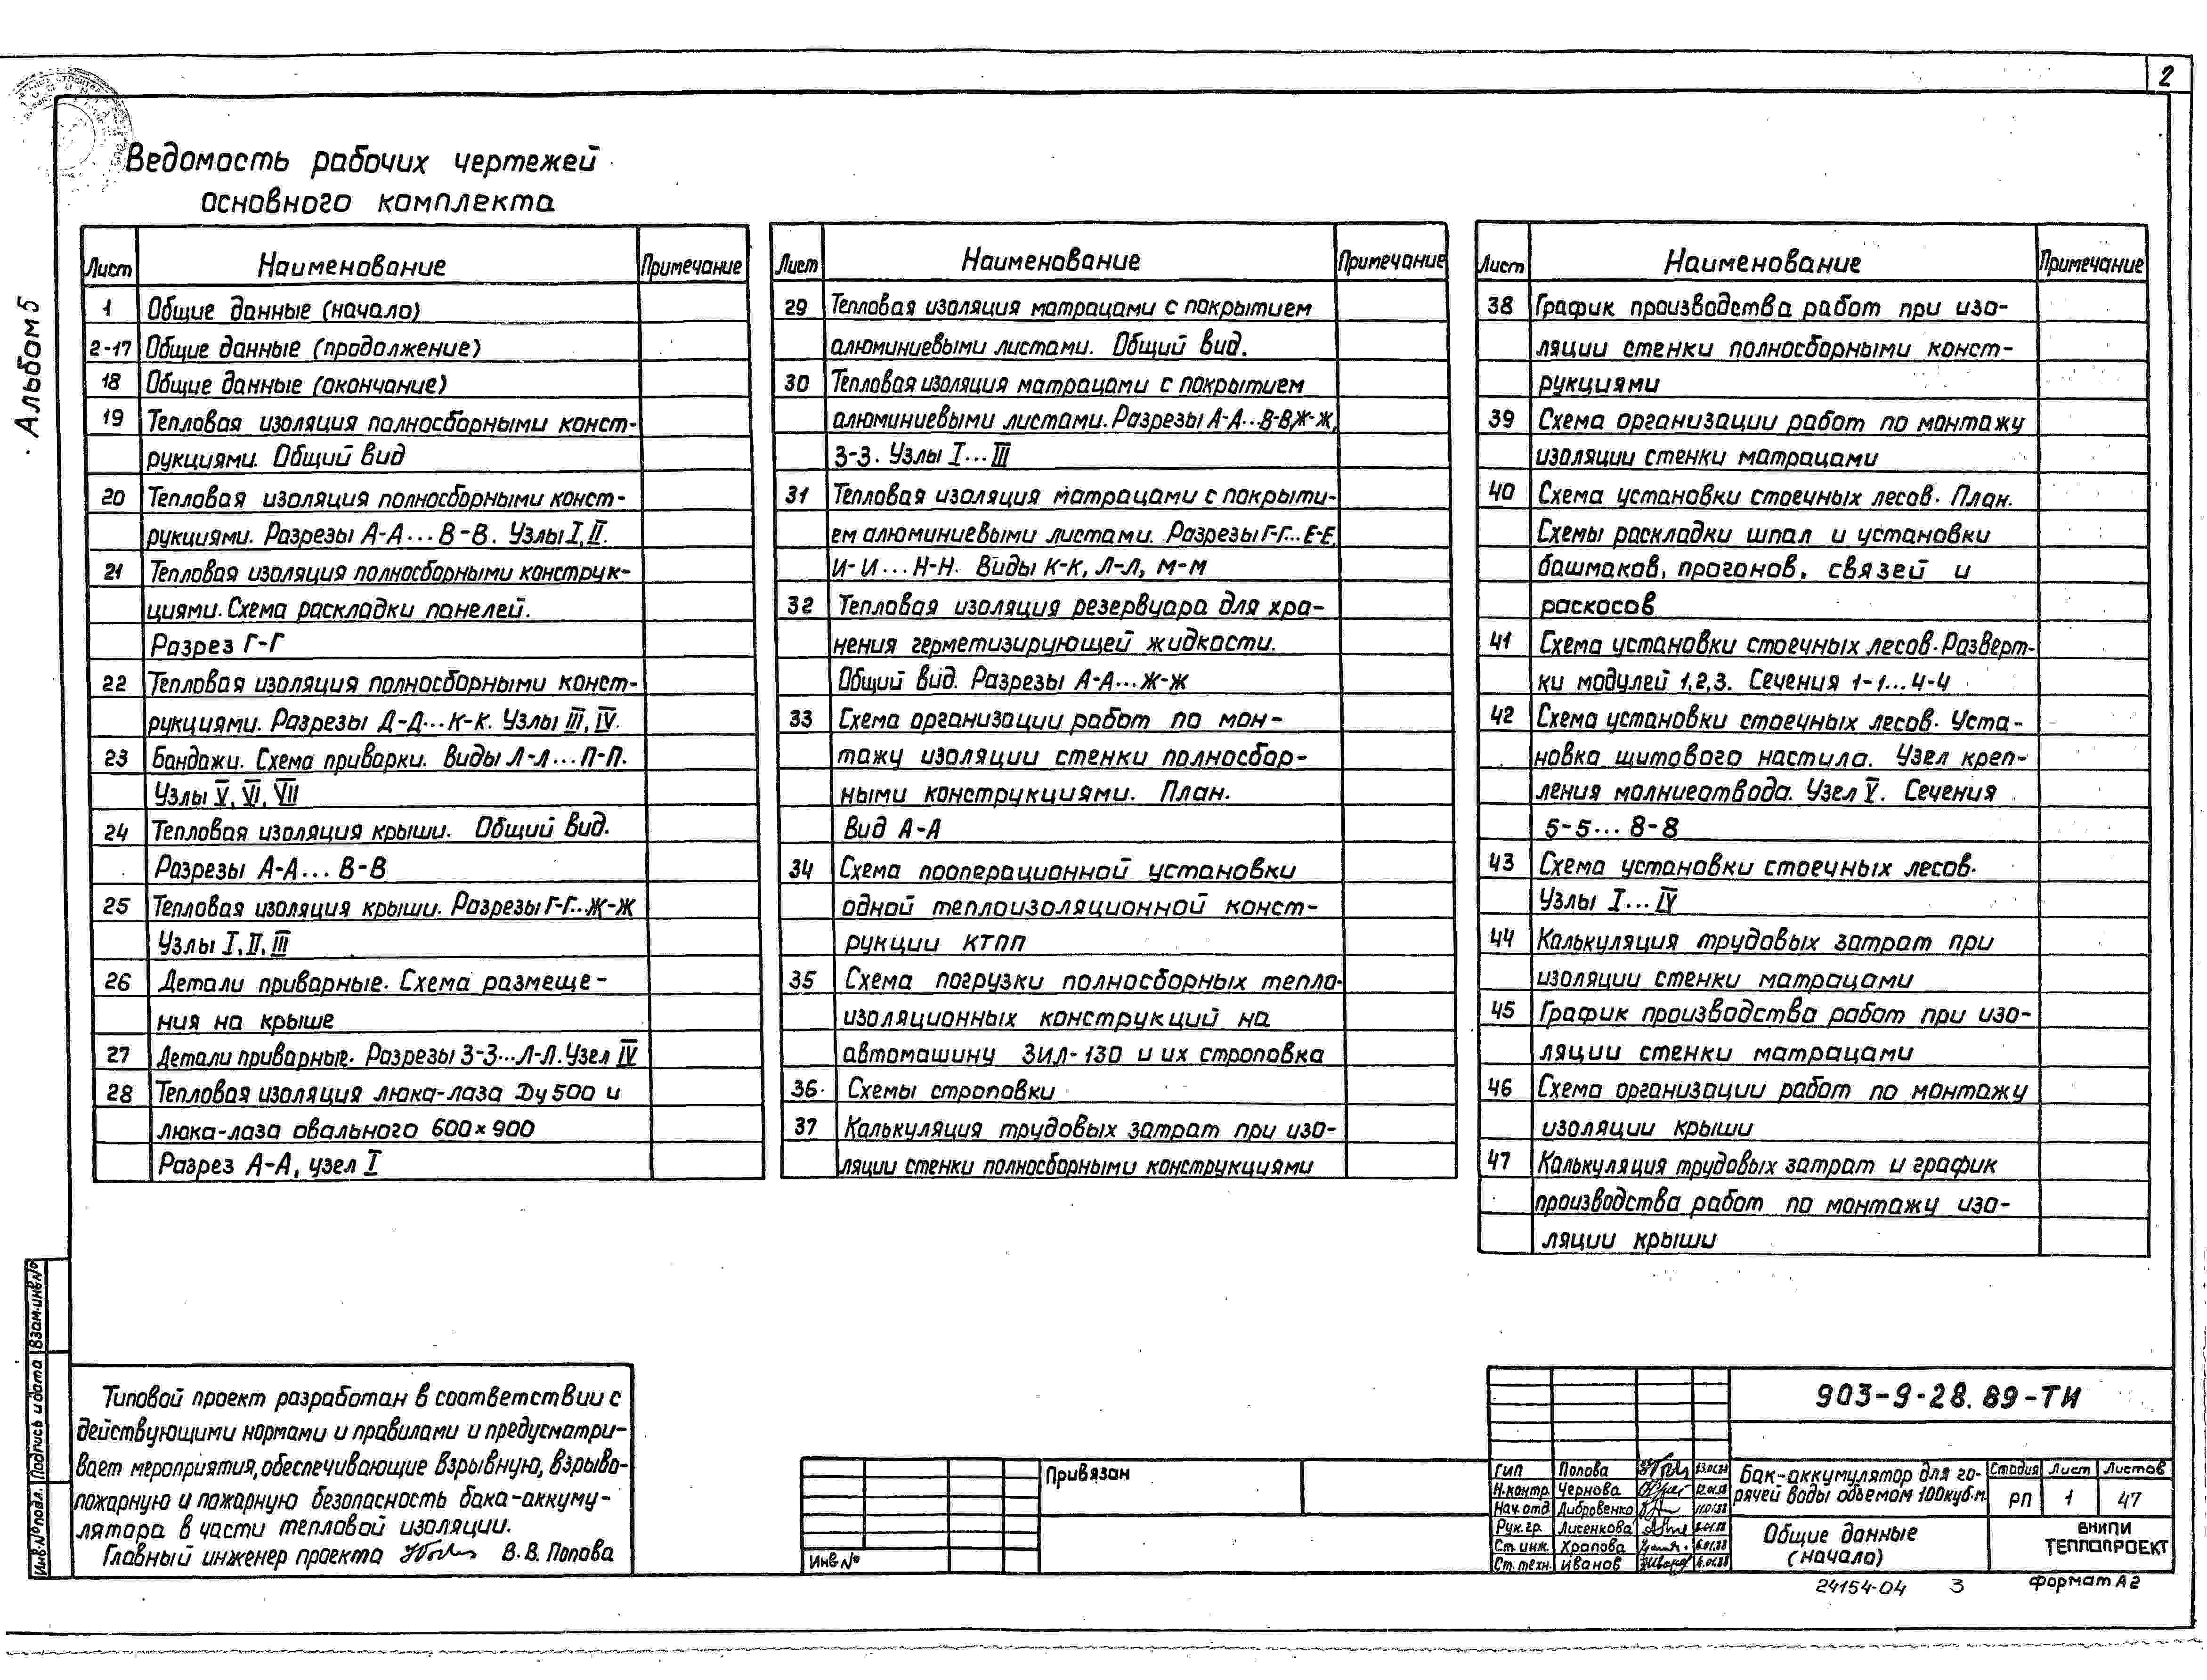 2
Альбом 5
Ведомость рабочих чертежей
основного комплекта
Лист Наименование Примечание
1 Общие данные (начало)
2-17 Общие данные (продолжение)
18 Общие данные (окончание)
19 Тепловая изоляция полносборными конст-
рукциями. Общий вид
20 Тепловая изоляция полносборными конст-
рукциями. Разрезы А-А...В-В. Узлы I, II.
21 Тепловая изоляция полносборными конструк-
циями. Схема раскладки панелей.
Разрез Г-Г
22 Тепловая изоляция полносборными конст-
рукциями. Разрезы Д-Д...К-К. Узлы III, IV.
23 Бандажи. Схема приварки. Виды Л-Л...П-П.
Узлы V, VI, VII
24 Тепловая изоляция крыши. Общий вид.
Разрезы А-А...В-В
25 Тепловая изоляция крыши. Разрезы Г-Г...Ж-Ж
Узлы I, II, III
26 Детали приварные. Схема размеще-
ния на крыше
27 Детали приварные. Разрезы З-З...Л-Л. Узел IV
28 Тепловая изоляция люка-лаза Ду 500 и
люка-лаза овального 600×900
Разрез А-А, узел I
Лист Наименование Примечание
29 Тепловая изоляция матрацами с покрытием
алюминиевыми листами. Общий вид.
30 Тепловая изоляция матрацами с покрытием
алюминиевыми листами. Разрезы А-А...В-В, Ж-Ж,
З-З. Узлы I...III
31 Тепловая изоляция матрацами с покрыти-
ем алюминиевыми листами. Разрезы Г-Г...Е-Е,
И-И...Н-Н. Виды К-К, Л-Л, М-М
32 Тепловая изоляция резервуара для хра-
нения герметизирующей жидкости.
Общий вид. Разрезы А-А...Ж-Ж
33 Схема организации работ по мон-
тажу изоляции стенки полносбор-
ными конструкциями. План.
Вид А-А
34 Схема пооперационной установки
одной теплоизоляционной конст-
рукции КТПП
35 Схема погрузки полносборных тепло-
изоляционных конструкций на
автомашину ЗИЛ-130 и их строповка
36 Схемы строповки
37 Калькуляция трудовых затрат при изо-
ляции стенки полносборными конструкциями
Лист Наименование Примечание
38 График производства работ при изо-
ляции стенки полносборными конст-
рукциями
39 Схема организации работ по монтажу
изоляции стенки матрацами
40 Схема установки стоечных лесов. План.
Схемы раскладки шпал и установки
башмаков, прогонов, связей и
раскосов
41 Схема установки стоечных лесов. Разверт-
ки модулей 1, 2, 3. Сечения 1-1...4-4
42 Схема установки стоечных лесов. Уста-
новка щитового настила. Узел креп-
ления молниеотвода. Узел V. Сечения
5-5...8-8
43 Схема установки стоечных лесов.
Узлы I...IV
44 Калькуляция трудовых затрат при
изоляции стенки матрацами
45 График производства работ при изо-
ляции стенки матрацами
46 Схема организации работ по монтажу
изоляции крыши
47 Калькуляция трудовых затрат и график
производства работ по монтажу изо-
ляции крыши
Инв.№подл. Подпись и дата Взам.инв.№
Типовой проект разработан в соответствии с
действующими нормами и правилами и предусматри-
вает мероприятия, обеспечивающие взрывную, взрыво-
пожарную и пожарную безопасность бака-аккуму-
лятора в части тепловой изоляции.
Главный инженер проекта В.В. Попова
Привязан
Инв №
903-9-28.89-ТИ
ГИП Попова 13.01.88
Н.контр. Чернова 12.01.88
Нач.отд. Дибровенко 11.01.88
Рук.гр. Лисенкова
Ст.инж. Храпова 6.01.88
Ст.техн. Иванов 6.01.88
Бак-аккумулятор для го-
рячей воды объемом 100куб.м.
Стадия Лист Листов
РП 1 47
Общие данные
(начало)
ВНИПИ
ТЕПЛОПРОЕКТ
24154-04 3 Формат А2